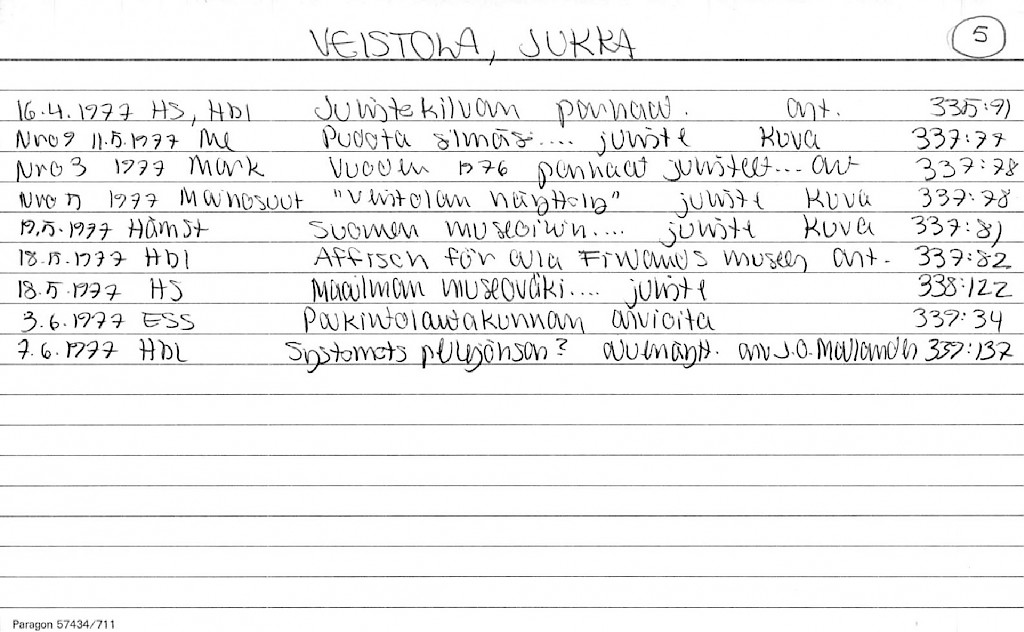 VEISTOLA, JUKKA 5
16.4.1977 HS, HBl Julistekilvan parhaat. art. 335:91
Nro 9 11.5.1977 Me Pudota silmäsi.... juliste kuva 337:77
Nro 3 1977 Mark Vuoden 1976 parhaat julisteet... art 337:78
Nro 5 1977 Mainosuut "Veistolan näyttely" juliste kuva 337:78
19.5.1977 HämSt Suomen museoihin.... juliste kuva 337:81
18.5.1977 HBl Affisch för alla Finlands museer art. 337:82
18.5.1977 HS Maailman museoväki.... juliste 338:122
3.6.1977 ESS Palkintolautakunnan arvioita 339:34
7.6.1977 HBL Systemets pellejönsar? arv J.O. Mallander 339:137